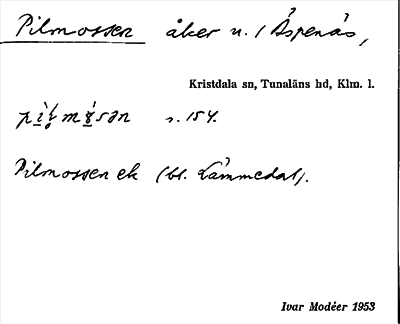 Pilmossen åker u. / Äspenäs,
Kristdala sn, Tunaläns hd, Klm. l.
s. 154.
Pilmossen ek (bl. Lämmedal).
Ivar Modéer 1953